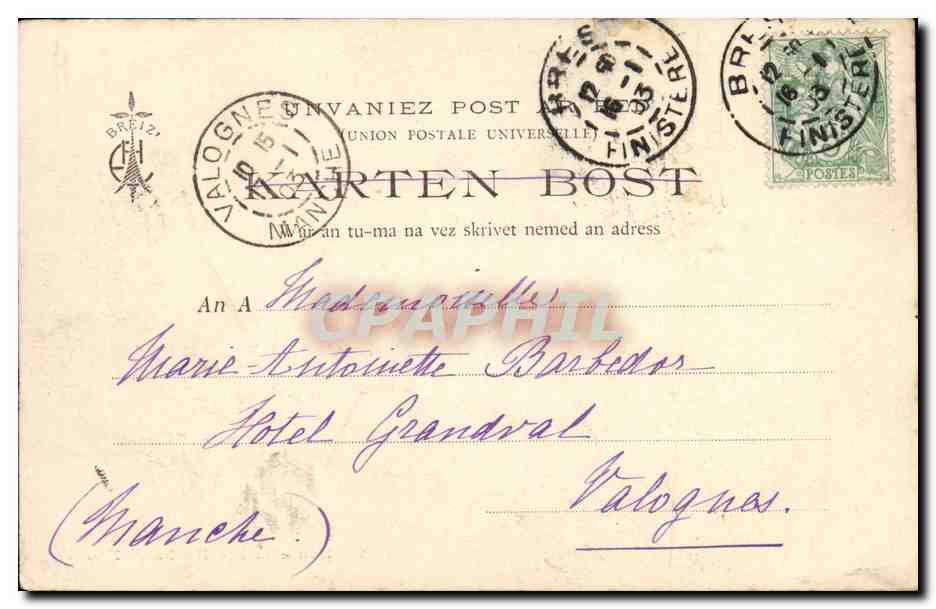 BREIZ
UNVANIEZ POST AR BED
(UNION POSTALE UNIVERSELLE)
KARTEN BOST
tu-ma na vez skrivet nemed an adress
VALOGNES
15
MANCHE
BREST
12
16
03
FINISTERE
BREST
12
16
03
FINISTERE
POSTES
An A Mademoiselle
Marie-Antoinette Barbedor
Hotel Grandval
Valognes.
(Manche.)
CPAPHIL